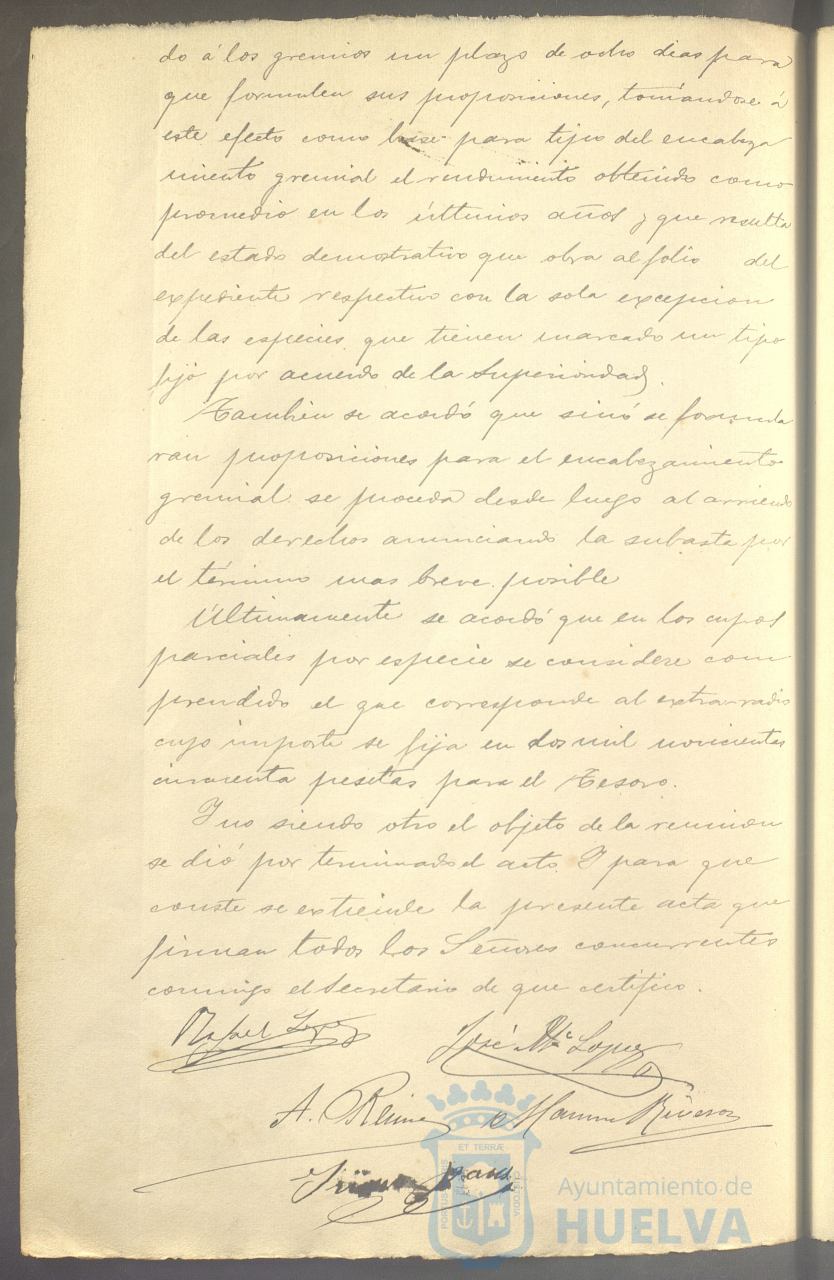 do á los gremios un plazo de ocho dias para
que formulen sus proposiciones, tomándose á
este efecto como base para tipo del encabeza
miento gremial el rendimiento obtenido como
promedio en los últimos años y que resulta
del estado demostrativo que obra al folio del
expediente respectivo con la sola excepcion
de las especies que tienen marcado un tipo
fijo por acuerdo de la Superioridad.
Tambien se acordó que sinó se formula
ran proposiciones para el encabezamiento
gremial se proceda desde luego al arriendo
de los derechos anunciando la subasta por
el término mas breve posible
Últimamente se acordó que en los cupos
parciales por especie se considere com
prendido el que corresponde al extra-radio
cuyo importe se fija en dos mil novecientas
cincuenta pesetas para el Tesoro.
Y no siendo otro el objeto de la reunion
se dió por terminado el acto. Y para que
conste se extiende la presente acta que
firman todos los Señores concurrentes
conmigo el Secretario de que certifico.
Rafael Lopez
José Mª Lopez
A.
ET TERRÆ
PORTUS MARIS
CUSTODIA
Ayuntamiento de
HUELVA